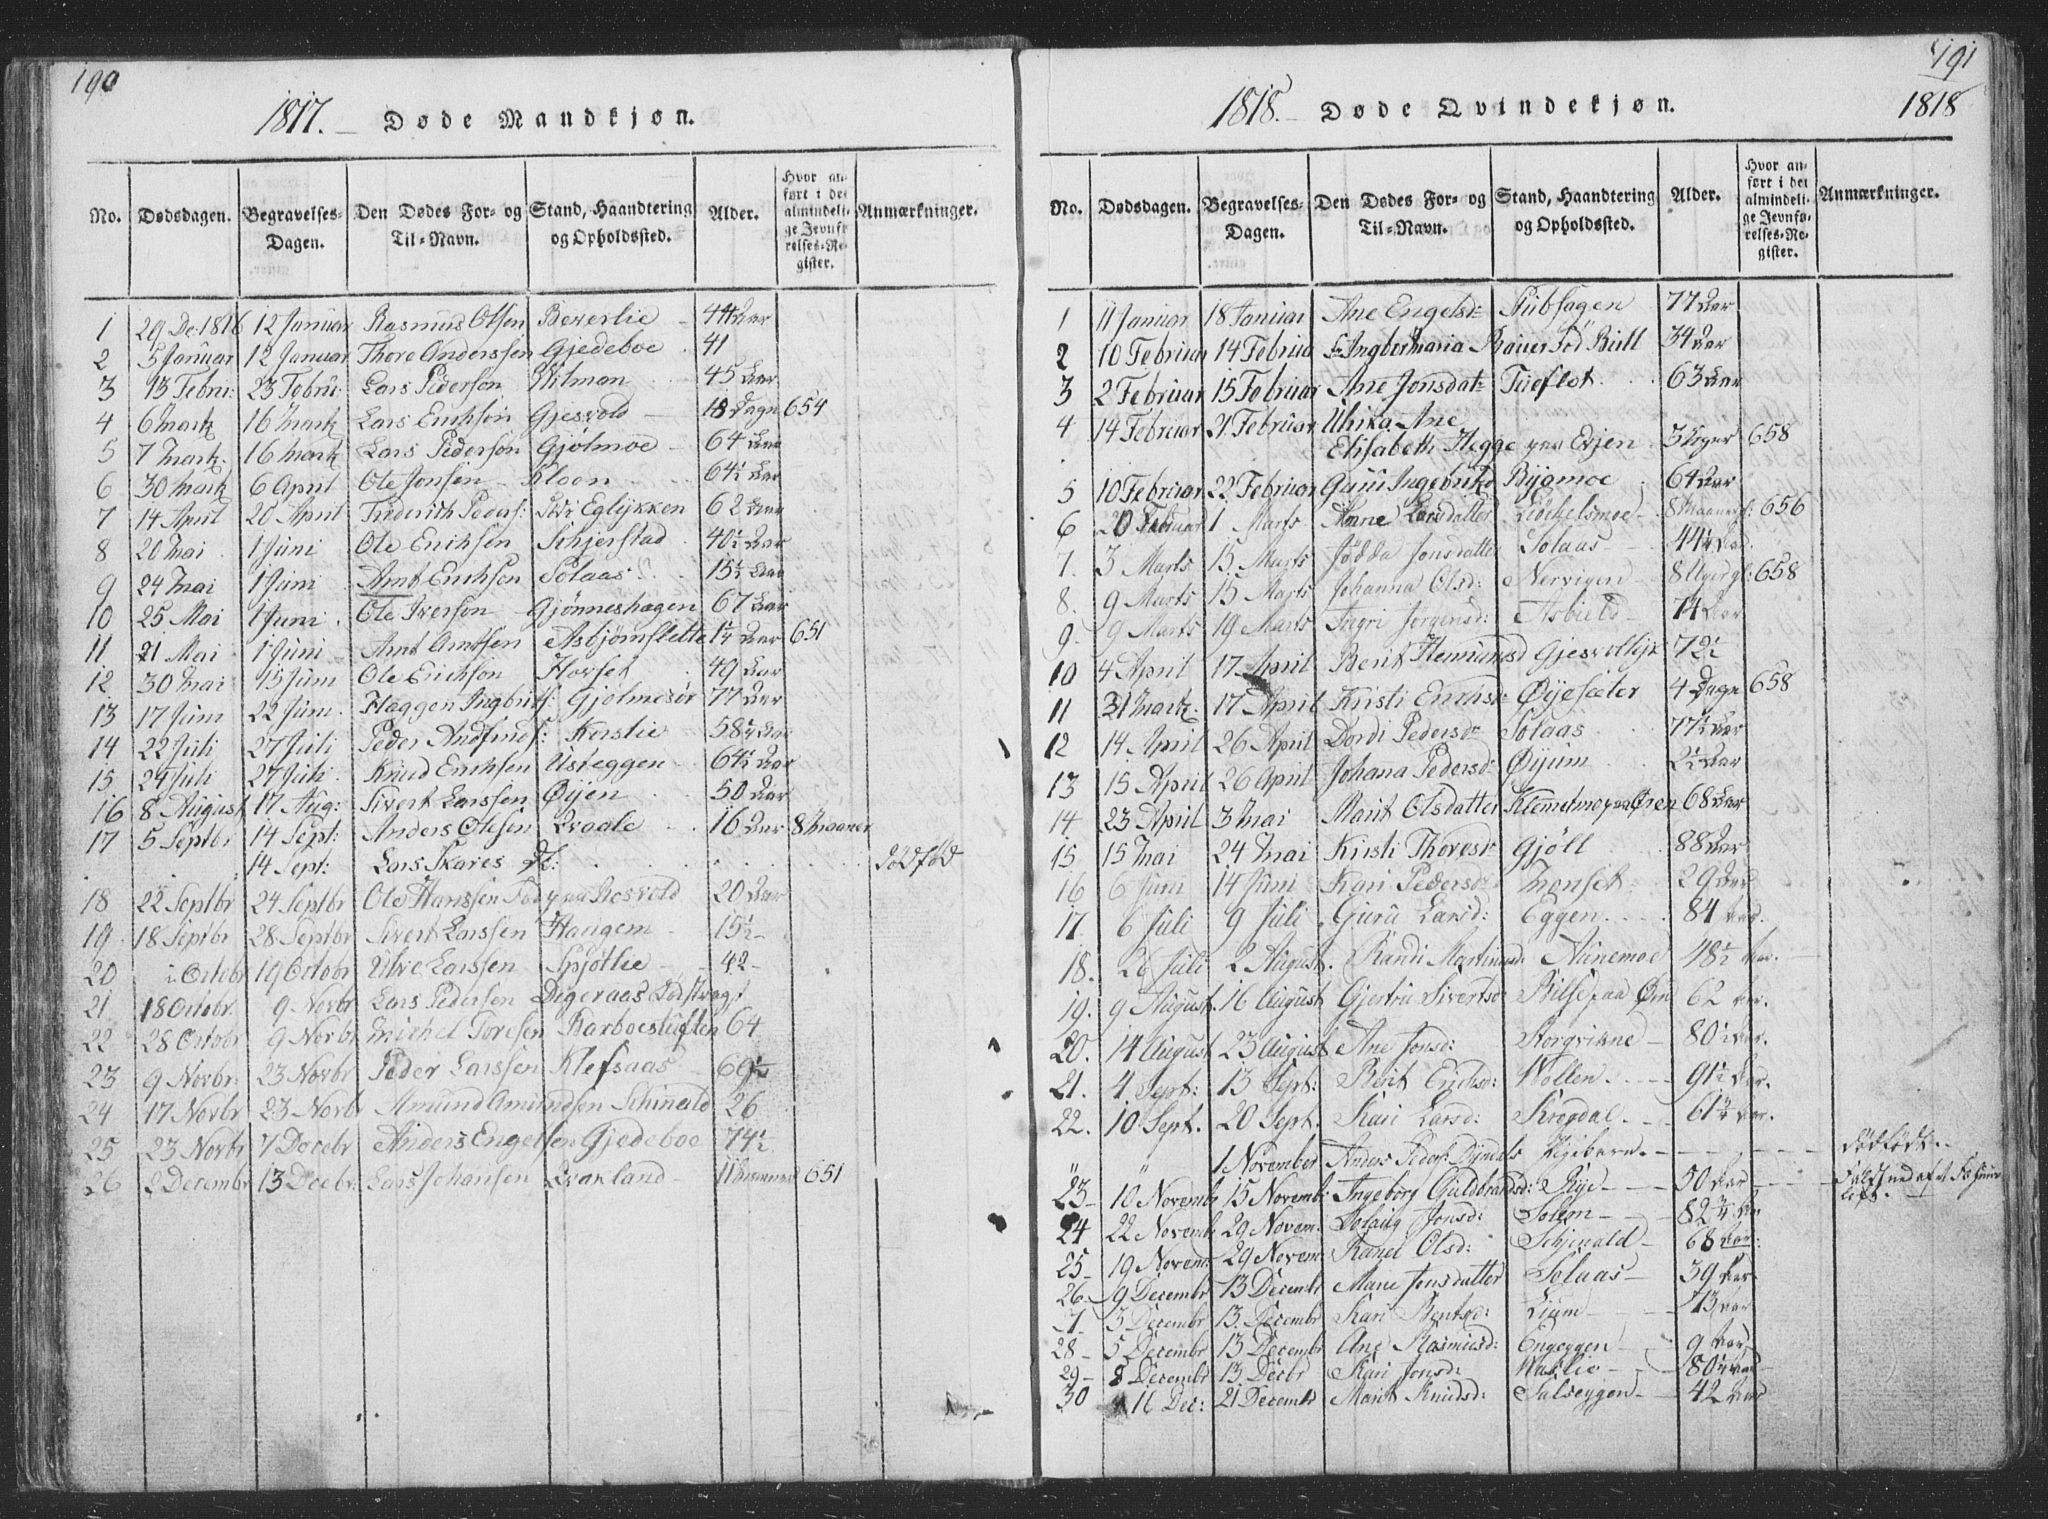 190
1817. Døde Mandkjøn.
No. Dødsdagen. Begravelses-Dagen. Den Dødes For- og Til-Navn. Stand, Haandtering og Opholdssted. Alder. Hvor anført i det almindelige Jevnførelses-Register. Anmærkninger.
1 29 De: 1816 12 Januar Rasmus Olsen Beverlie 44 Aar
2 5 Januar 12 Januar Thore Anderssen Gjedeboe 41
3 13 Febru: 23 Febru: Lars Pederson 45 Aar
4 6 Mark 16 Mark Lars Erichson Gjesvold 18 Dage 654
5 7 Mark. 16 Mark Lars Pederson Gjolmoe 64 Aar
6 30 Mark 6 April Ole Jonsen Kloon 64½ Aar
7 14 April 20 April Friderich Peders: Eglykken 62 Aar
8 20 Mai 1 Juni Ole Eriksen Schjerstad 40½ Aar
9 24 Mai 1 Juni Arnt Erichson Solaas 15½ Aar
10 25 Mai 1 Juni Ole Iverson Gjønneshagen 67 Aar
11 21 Mai 1 Juni Arnt Arntsen Asbjørnslette Aar 651
12 30 Mai 15 Juni Ole Erichson Horset 49 Aar
13 17 Juni 22 Juni Haggen Ingbrits: Gjolmesør 77 Aar
14 22 Juli 27 Juli Peder Korslie 58½ Aar
15 24 Juli 27 Juli Knud Erichsen Usteggen 64½ Aar
16 8 August 17 Aug: Sivert Larssen Øyen 50 Aar
17 5 Septbr 14 Sept: Anders Olesen Qvaale 16 Aar 8 Maaner
14 Sept: Lars Skares Dødfød
18 22 Septbr 24 Septbr Ole Hanssen Fød paa 20 Aar
19 18 Septbr 28 Septbr Sivert Larssen Haugem 15½
20 Octobr 19 Octobr Larssen Spjøtlie 42
21 18 Octobr. 9 Norbr Lars Pedersen Digeraas
22 28 Octobr 9 Norbr Michel Toresen Karboestuften 64
23 9 Norbr: 23 Norbr Peder Larssen Klefsaas 69½
24 17 Norbr 23 Norbr Amund Amundsen Schinald 26
25 23 Norbr 7 Decebr Anders Engelsen Gjedeboe 74½
26 2 Decembr 13 Dcebr: Lars Johansen Qvanland 11 651
191
1818. Døde Qvindekjøn. 1818
No. Dødsdagen. Begravelses-Dagen. Den Dødes For- og Til-Navn. Stand, Haandtering og Opholdssted. Alder. Hvor anført i det almindelige Jevnførelses-Register. Anmærkninger.
1 11 Januar 18 Januar Ane Engelsd: 77 Aar
2 10 Februar 14 Februa Ingbermaria Bauer Fød Bull 34 Aar
3 2 Februar 15 Februar Ane Jonsdat: 63 Aar
4 14 Februar 21 Februar Ulrika Ane
Elisabeth Hegge paa Evjen 3 Uger 658
5 10 Februar 22 Februar Guru Ingebrikd Rygmoe 64 Aar
6 20 Februar 1 Marts Anne Larsdatter 656
7. 3 Marts 15 Marts Jonsdatter Solaas 44½ Aar
8. 9 Marts 15 Marts Johanna Olsd: Nervigen 658
9. 9 Marts 19 Marts Ingri Jørgensd: 74 Aar
10 4 April 17 April Berit 72½
11 31 Mark. 17 April Kristi Erichsd: Øyesæter 4 Dage 658
12 14 April 26 April Dordi Pedersd: Solaas 77½ Aar
13 15 April 26 April Johana Pedersd: Øyum 2½ Aar
14 23 April 3 Mai Marit Olsdatter Klemetmo paa Øren 68 Aar
15 15 Mai 24 Mai Kirsti Thoresd: Gjøll 88 Aar
16 6 Juni 14 Juni Kari Pedersd: Monset 29 Aar
17. 6 Juli 9 Juli Guru Larsd: Eggen 84 Aar
18. 26 Juli 2 August. Randi Aunemoe 48½ Aar
19. 9 August. 16 August Gjertru Sivertsd: paa Ørn 62 Aar.
20. 14 August 23 August Ane Jonsd: Storgvikne 80½ Aar.
21. 4 Sept: 13 Sept: Berit Ericksd: Wollen 91½ Aar.
22. 10 Sept. 20 Sept. Kari Larsd: Kregdal 61½ Aar.
1 November Anders Peders: Pigebarn Dødfødt.
23 10 Novemb 15 Novemb: Ingeborg Guldbrandsd: Rye 50 Aar
24 22 Novemb 29 Novem: Solaug Jonsd: Solem 82
25 19 Novem: 29 Novem: Ranei Olsd: Schjinald 68 Aar:
26. 9 Decembr 13 Decembr Marie Jonsdatter Solaas 39 Aar
7. 3 Decembr 13. Decembr Kari Bentsd: Lium 73 Aar
28 5 Decembr 13 Decembr Ane Rasmusd: Engeggen 9 Aar
29 8 Decembr 13. Decbr Kari Jonsd: 80½ Aar
30 11 Dec: 21 Decembr Marit Knudsd: Salseggen 42 Aar